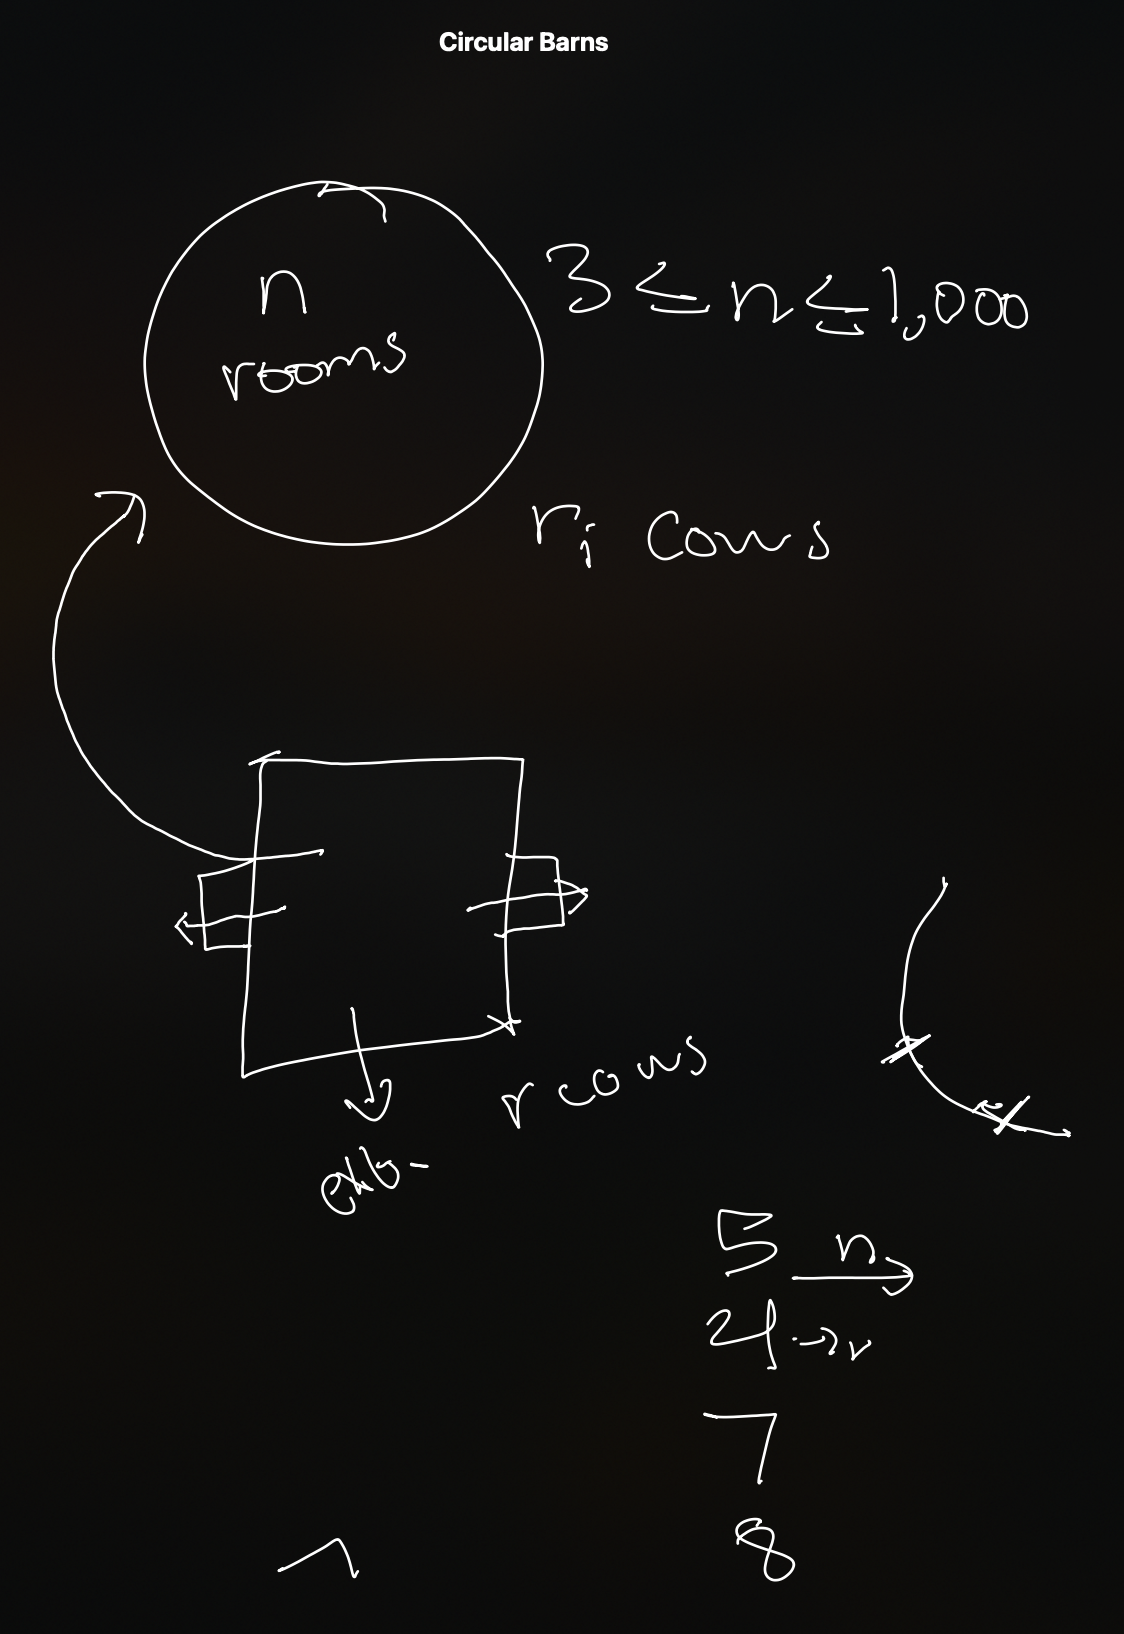 Circular Barns
n
rooms
3 ≤ n ≤ 1,000
ri cows
r cows
5 n
4 → r
7
8